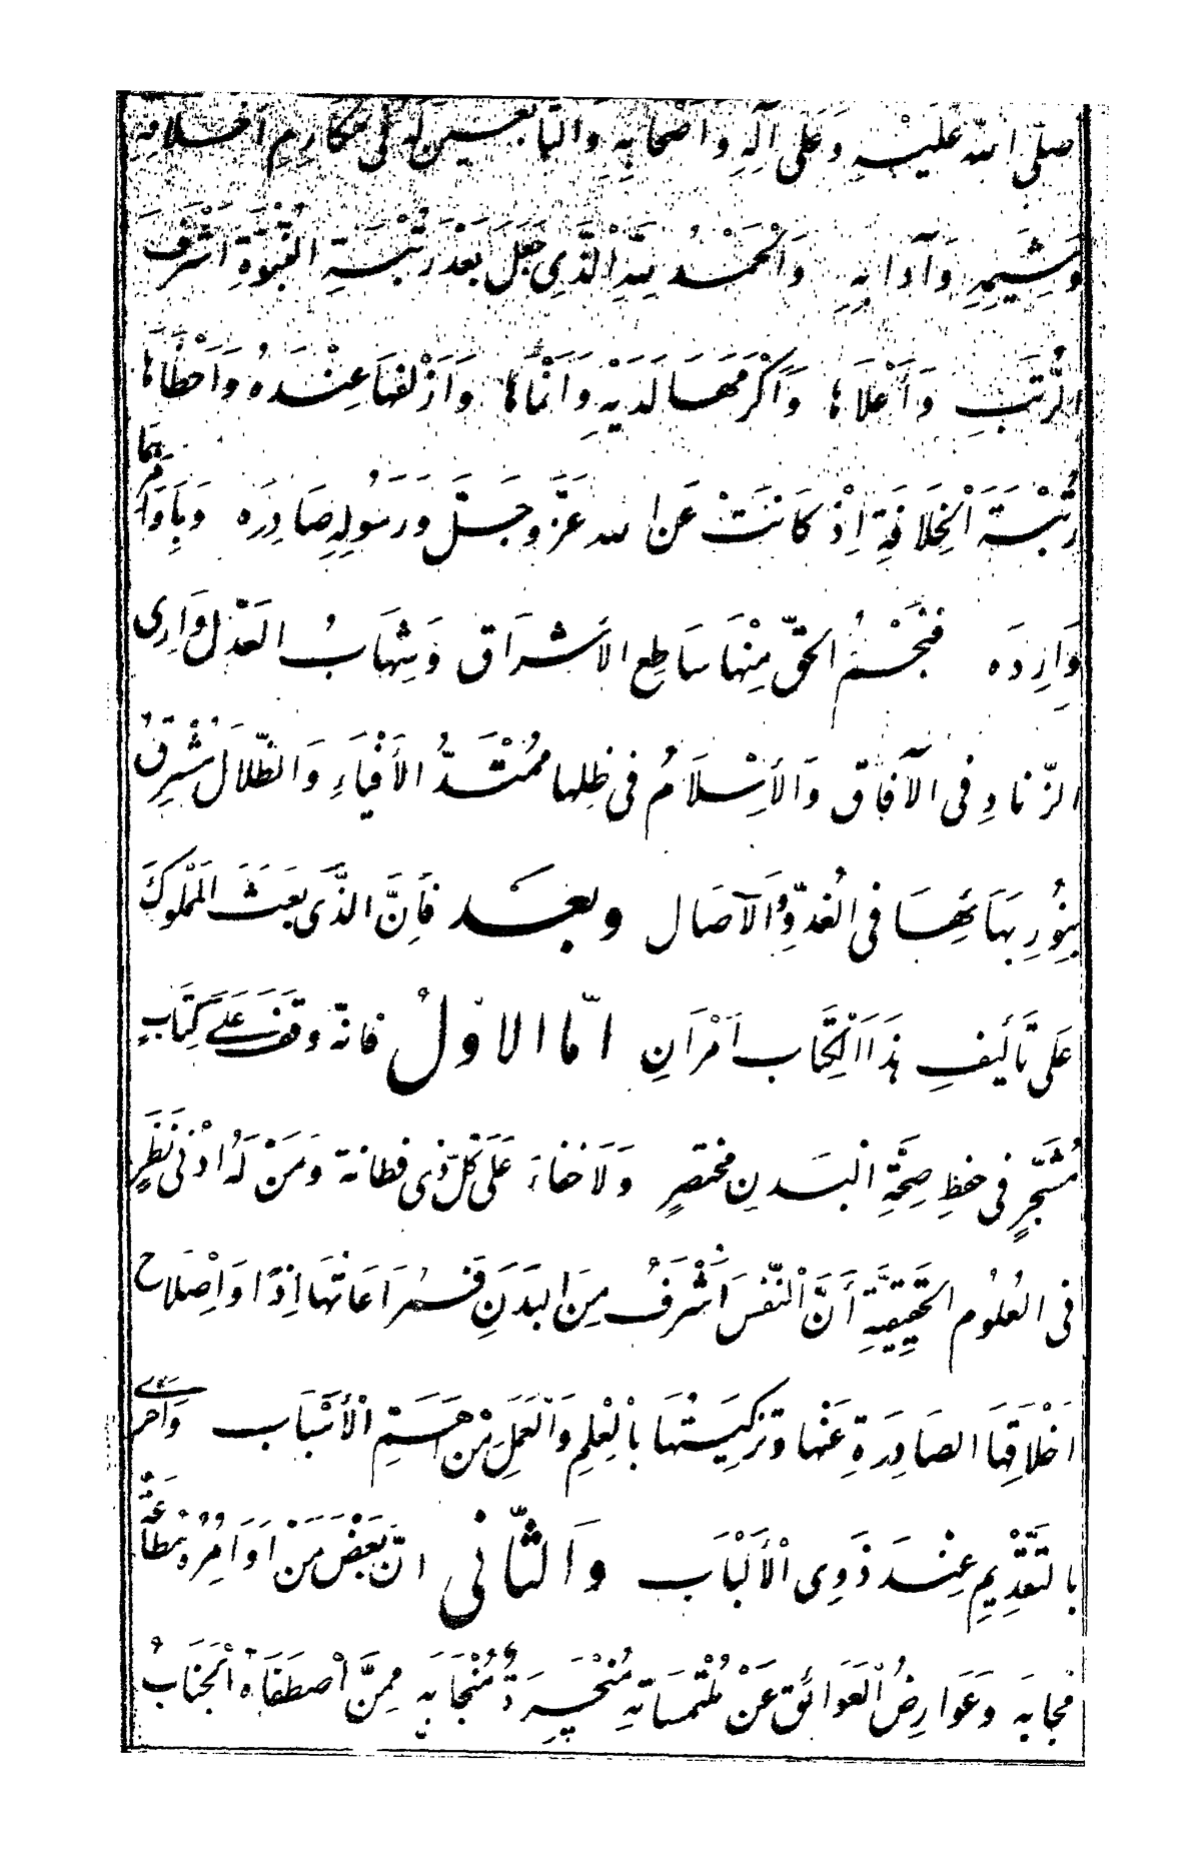 صلّى الله عَلَيْهِ وَعَلى آلِهِ وَاَصْحَابِهِ وَالتّابعين لَهُ في مَكَارِمِ اَخلاقِهِ
وَشِيَمِهِ وَآدَابِهِ وَالْحَمْدُ لِلّهِ الَّذِي جَعَلَ بَعْدَ رُتْبَةِ النُّبُوَّةِ اَشْرَفَ
الرُّتَبِ وَأَعْلاَهَا وَأَكْرَمَهَا لَدَيْهِ وَاَنْمَاهَا وَاَزْلَفَهَا عِنْدَهُ وَاَحْظَاهَا
رُتْبَةَ الْخِلَافَةِ اِذْ كَانَتْ عَنِ الله عَزَّ وَجَلَّ وَرَسُولِهِ صَادِرَه وَبِاَوَامِرِهِمَا
وَارِدَه فَنَجْمُ الحَقِّ مِنْهَا سَاطِع الأَشرَاق وَشِهَابُ العَدْلِ وَارِى
الزّنادِ فى الآفَاق وَالأِسْلَامُ فى ظِلها مُمْتَدُّ الأَفْيَاءِ وَالظِّلالَ مُشْرِقٌ
بِنُورِ بَهَائِهَا فى الغُدُوِّ وَالآصَال وبعَد فَاِنَّ الَّذى بَعَثَ المَمْلُوكَ
عَلى تَأْلِيفِ هَذَا الْكِتَاب اَمْرَانِ امّا الاوّلُ فانّه وَقَفَ عَلَى كِتَابٍ
مُشَجَّرٍ فى حفظِ صِحَّةِ البَدنِ مختصرٍ وَلَا خفاءَ عَلَى كُلِّ ذى فطانة وَمَنْ لَهُ اَدْنى نَظَرٍ
فى العُلُوم الحَقِيقِيَّةِ أَنَّ النَّفْسَ اَشْرَفُ مِنَ البَدَنِ فَمُرَاعَاتُهَا اِذًا وَاِصْلَاح
اَخْلَاقِهَا الصَادِرَةِ عَنْهَا وَتَزكِيَتُهَا بِالْعِلمِ وَالْعَمَلِ مِنْ اَهَمِّ الْأَسْبَاب وَاَحْرى
بالتَقْدِيمِ عِنْدَ ذَوِى الْأَلْبَاب وَالثّانى انّ بَعْضَ مَنْ اَوَامِرُهُ مُطَاعَةٌ
مجابَه وَعَوَارِضُ الْعَوَائِق عَنْ مُلْتَمَسَاتِهِ مُنْجَابَه مِمَّنْ اصطَفَاهُ الْجَنَابُ